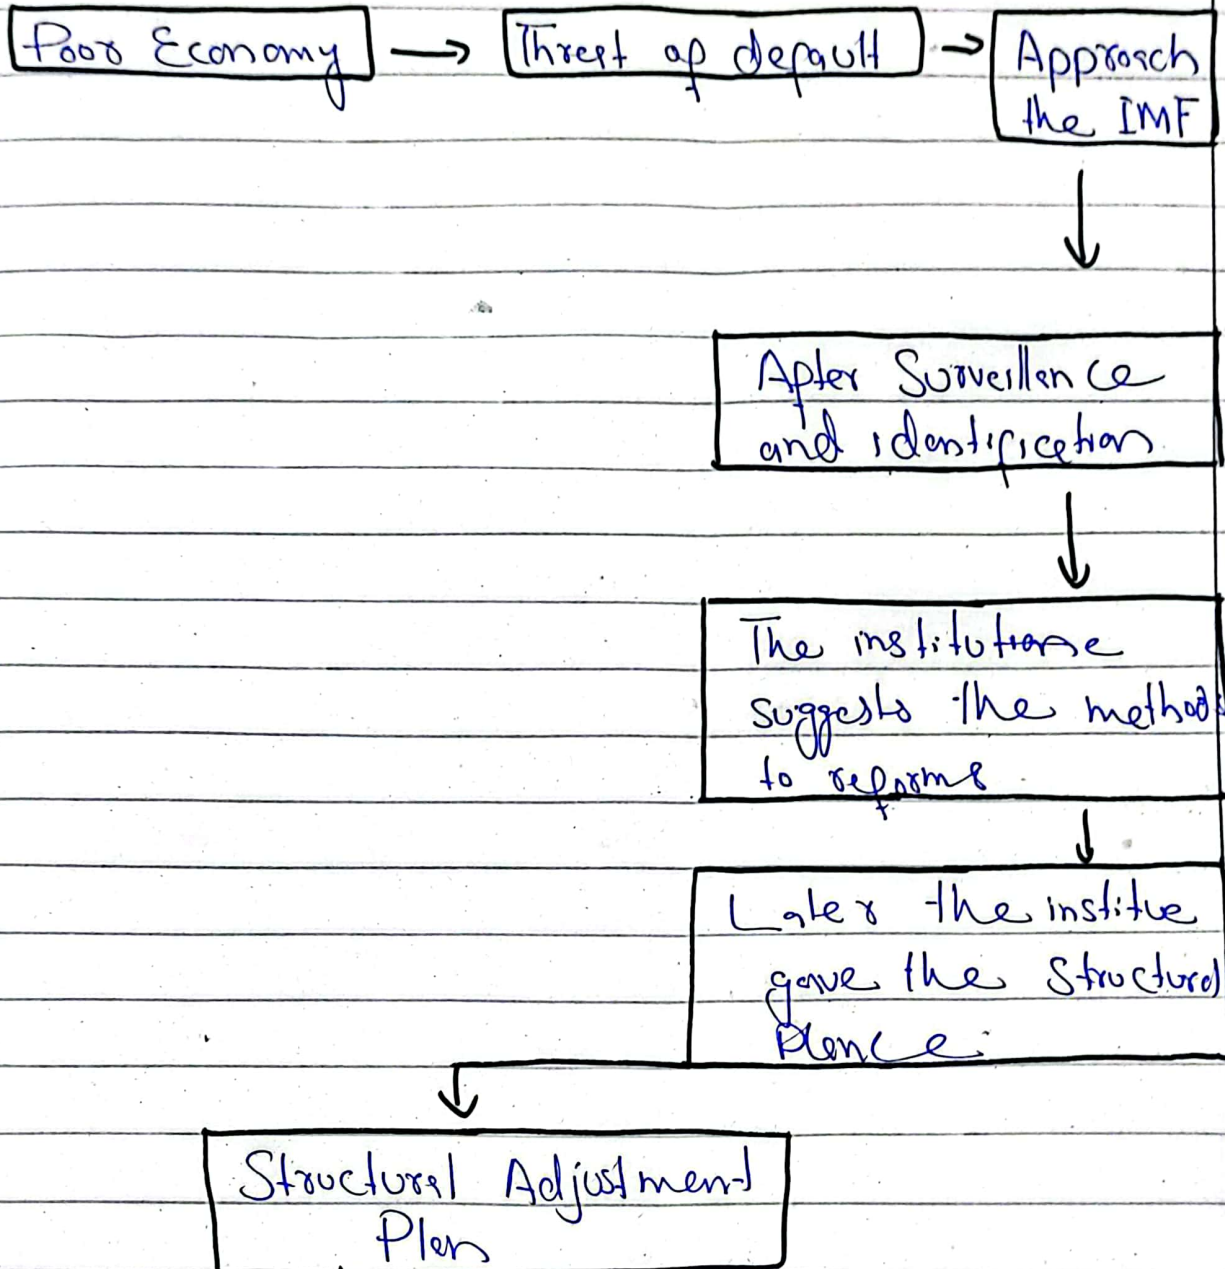 Poor Economy → Threat of default → Approach
the IMF
After Surveillence
and identification
The institutione
suggests the methods
to reforms
Later the institue
gave the Structural
Plance
Structural Adjustment
Plan